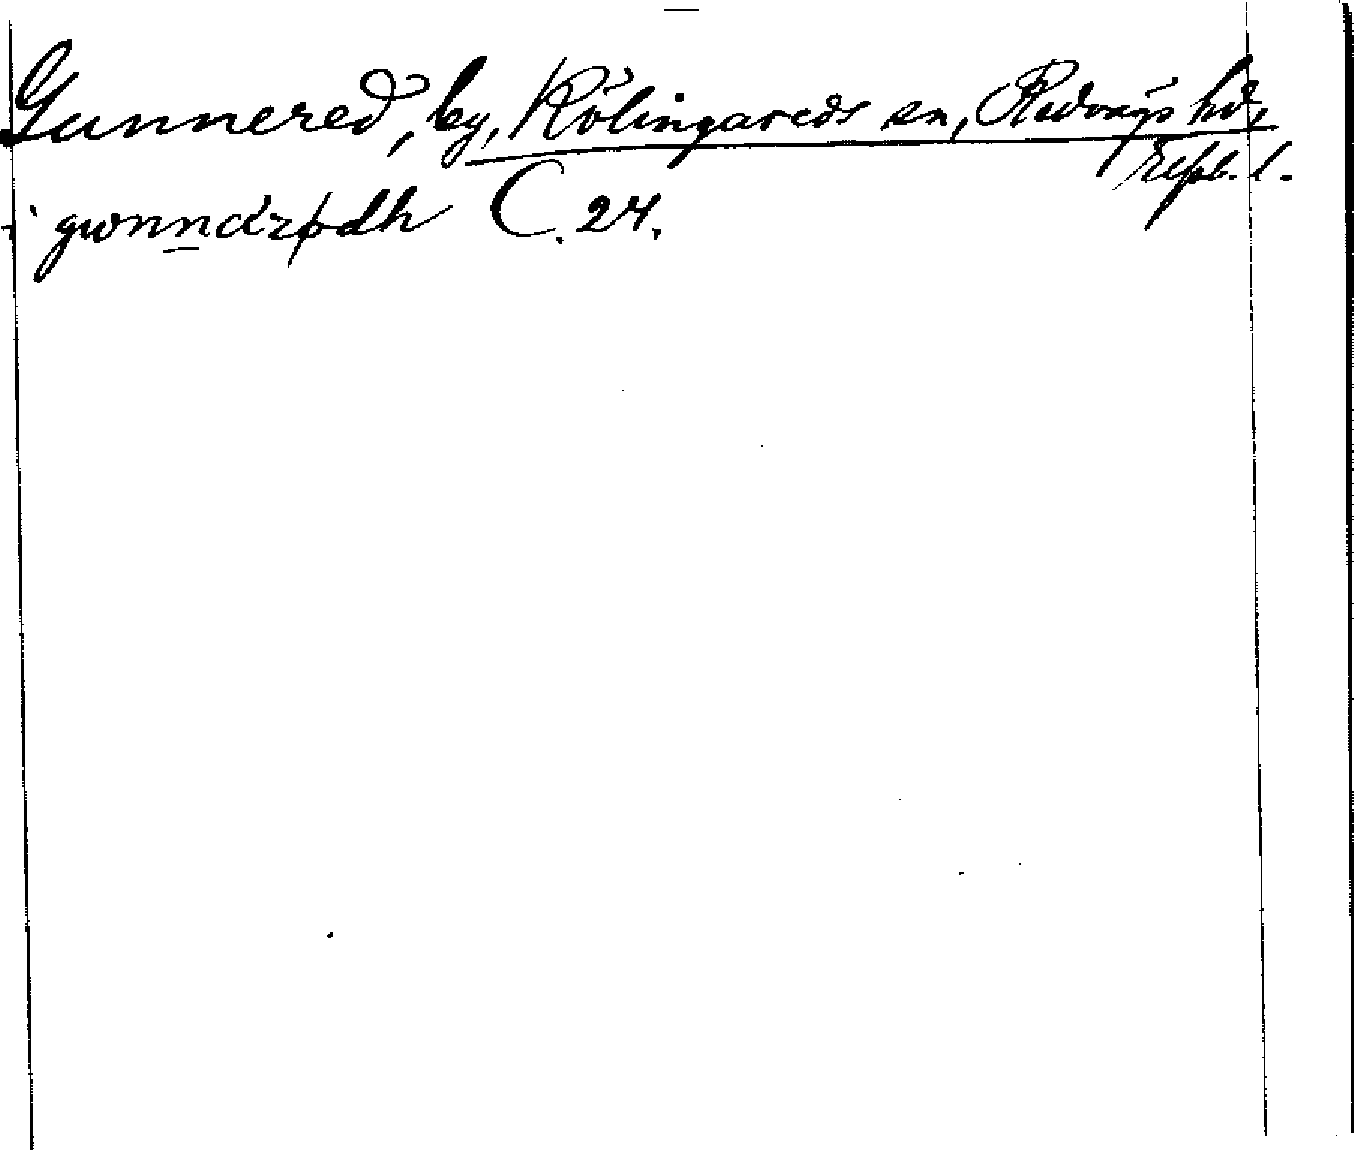 Gunnered, by, Kölingareds sn, Redvägs hd,
Elfsb. l.
i gwnndrødh C. 24.